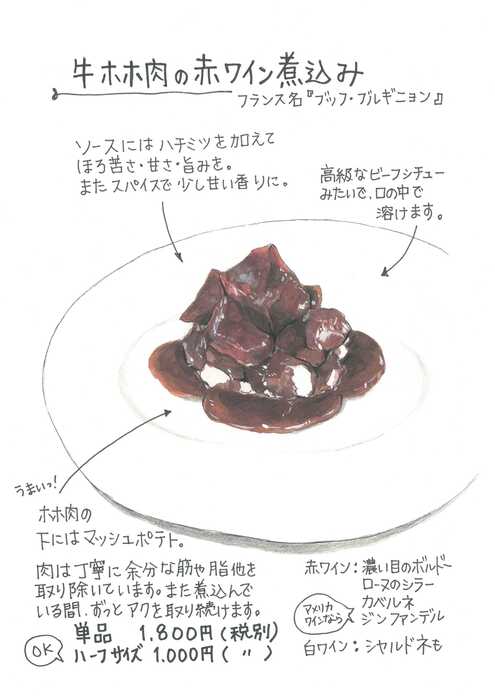 牛ホホ肉の赤ワイン煮込み
フランス名『ブッフ・ブルギニョン』
ソースにはハチミツを加えて
ほろ苦さ・甘さ・旨みを。
またスパイスで少し甘い香りに。
高級なビーフシチュー
みたいで、口の中で
溶けます。
うまいっ!
ホホ肉の
下にはマッシュポテト。
肉は丁寧に余分な筋や脂他を
取り除いています。また煮込んで
いる間、ずっとアクを取り続けます。
単品 1.800円(税別)
OK ハーフサイズ 1.000円( 〃 )
赤ワイン:濃い目のボルドー
ローヌのシラー
アメリカ
ワインなら
カベルネ
ジンファンデル
白ワイン:シャルドネも